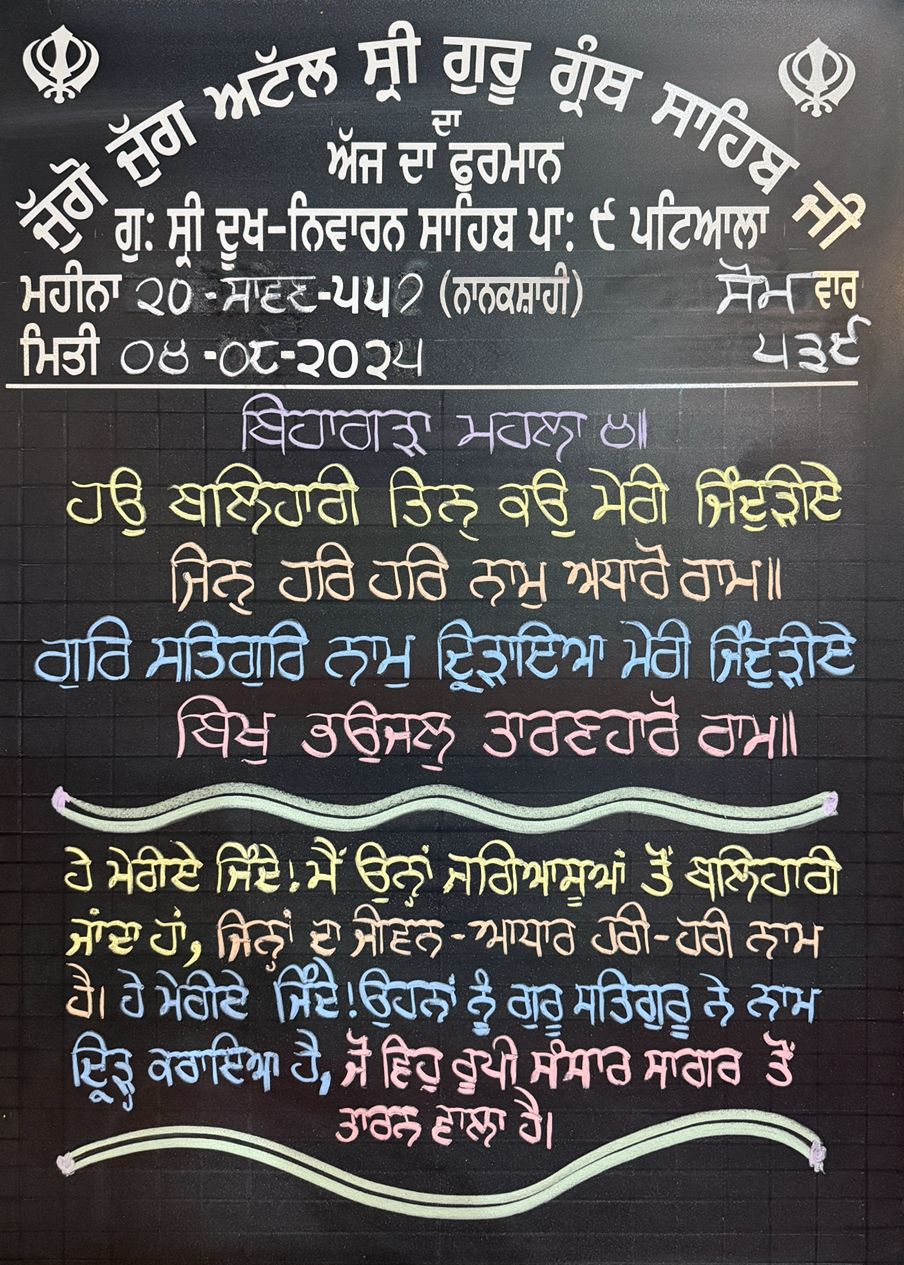 ਜੁੱਗੋ ਜੁੱਗ ਅਟੱਲ ਸ੍ਰੀ ਗੁਰੂ ਗ੍ਰੰਥ ਸਾਹਿਬ ਜੀ
ਦਾ
ਅੱਜ ਦਾ ਫੂਰਮਾਨ
ਗੁ: ਸ੍ਰੀ ਦੂਖ-ਨਿਵਾਰਨ ਸਾਹਿਬ ਪਾ: ੯ ਪਟਿਆਲਾ
ਮਹੀਨਾ ੨੦ -ਸਾਵਣ-੫੫੭ (ਨਾਨਕਸ਼ਾਹੀ) ਸੋਮ ਵਾਰ
ਮਿਤੀ ੦੪ -੦੮-੨੦੨੫ ੫੩ਈ
ਬਿਹਾਗੜਾ ਮਹਲਾ ੪॥
ਹਉ ਬਲਿਹਾਰੀ ਤਿਨ੍ ਕਉ ਮੇਰੀ ਜਿੰਦੁੜੀਏ
ਜਿਨ੍ ਹਰਿ ਹਰਿ ਨਾਮੁ ਅਧਾਰੋ ਰਾਮ॥
ਗੁਰਿ ਸਤਿਗੁਰਿ ਨਾਮੁ ਦ੍ਰਿੜਾਇਆ ਮੇਰੀ ਜਿੰਦੁੜੀਏ
ਬਿਖੁ ਭਉਜਲੁ ਤਾਰਣਹਾਰੋ ਰਾਮ॥
ਹੇ ਮੇਰੀਏ ਜਿੰਦੇ! ਮੈਂ ਉਨ੍ਹਾਂ ਜਗਿਆਸੂਆਂ ਤੋਂ ਬਲਿਹਾਰੀ
ਜਾਂਦਾ ਹਾਂ, ਜਿਨ੍ਹਾਂ ਦਾ ਜੀਵਨ-ਆਧਾਰ ਹਰੀ-ਹਰੀ ਨਾਮ
ਹੈ। ਹੇ ਮੇਰੀਏ ਜਿੰਦੇ! ਉਹਨਾਂ ਨੂੰ ਗੁਰੂ ਸਤਿਗੁਰੂ ਨੇ ਨਾਮ
ਦ੍ਰਿੜ੍ਹ ਕਰਾਇਆ ਹੈ, ਜੋ ਵਿਹੁ ਰੂਪੀ ਸੰਸਾਰ ਸਾਗਰ ਤੋਂ
ਤਾਰਨ ਵਾਲਾ ਹੈ।